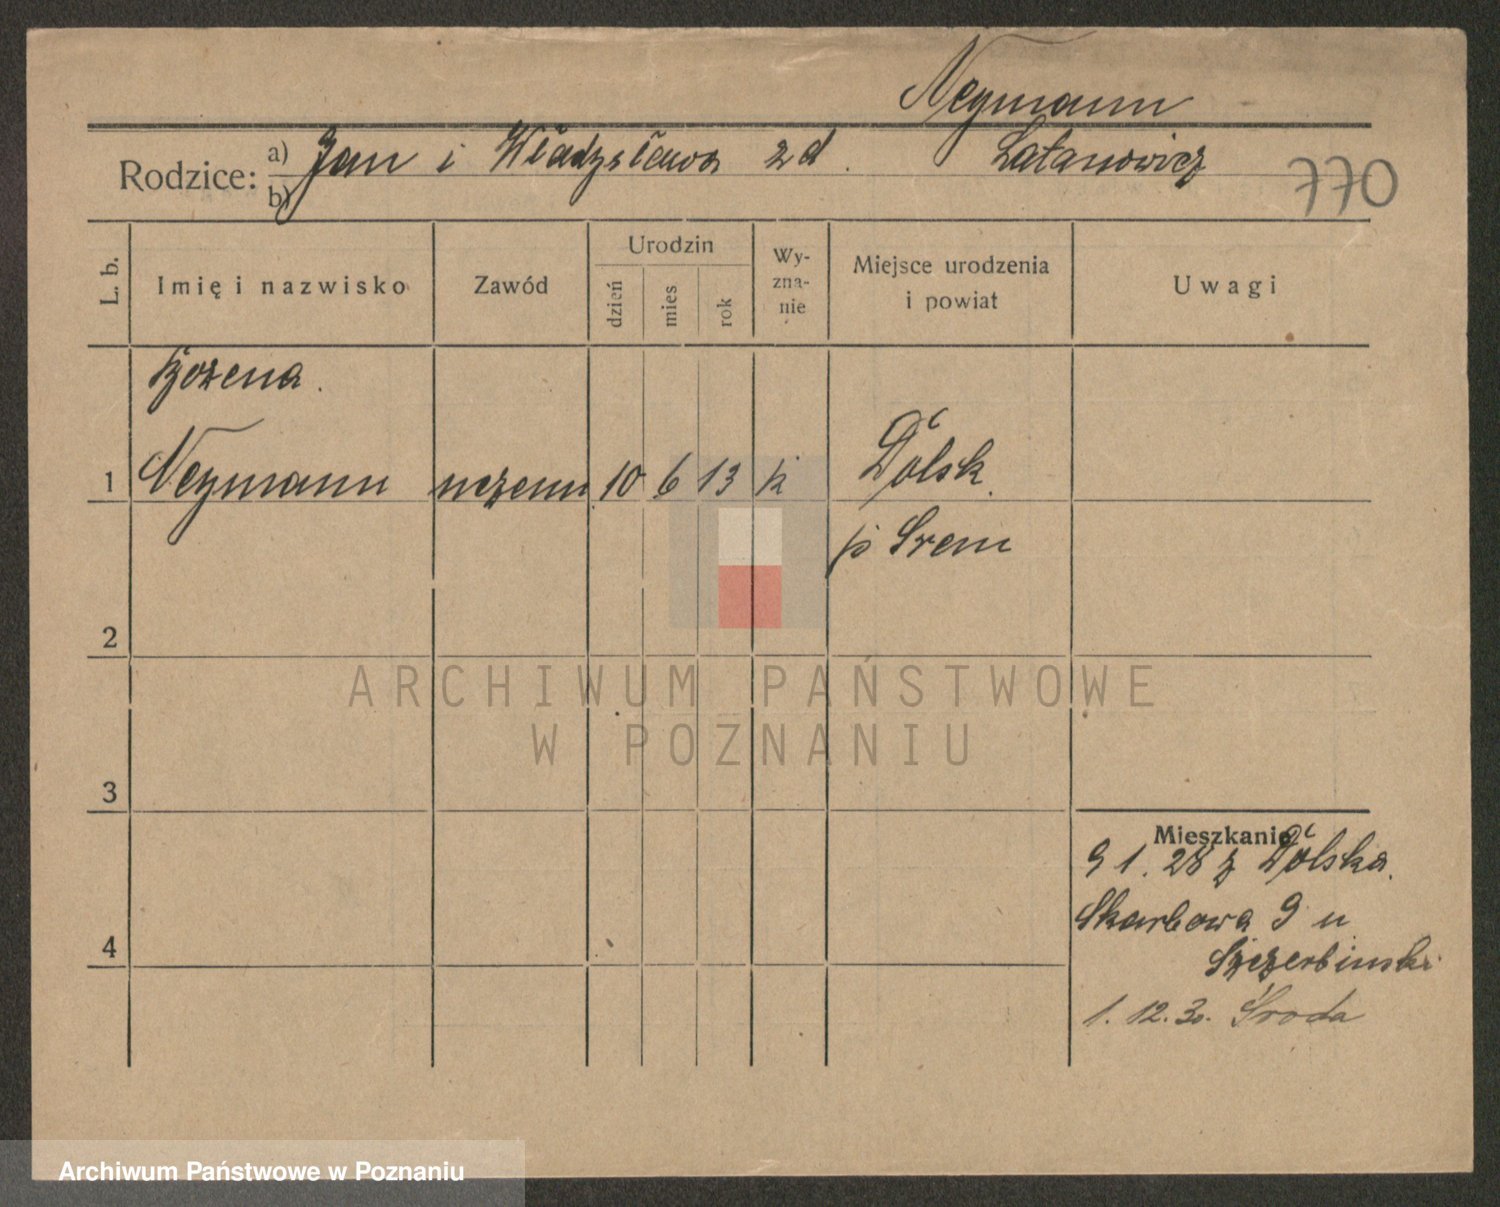 Neymann
Rodzice: a) Jan i Władysława z d. Łatanowicz
b)
770
L. b.
Imię i nazwisko
Zawód
Urodzin
dzień
mies
rok
Wy-
zna-
nie
Miejsce urodzenia
i powiat
Uwagi
Bożena.
1 Neymann uczenn 10 6 13 k Dolsk
p Śrem
2
ARCHIWUM PAŃSTWOWE
W POZNANIU
3
Mieszkanie
9 1. 28 z Dolska.
Skarbowa 9 u
4
Szczerbinski
1. 12. 30. Środa
Archiwum Państwowe w Poznaniu